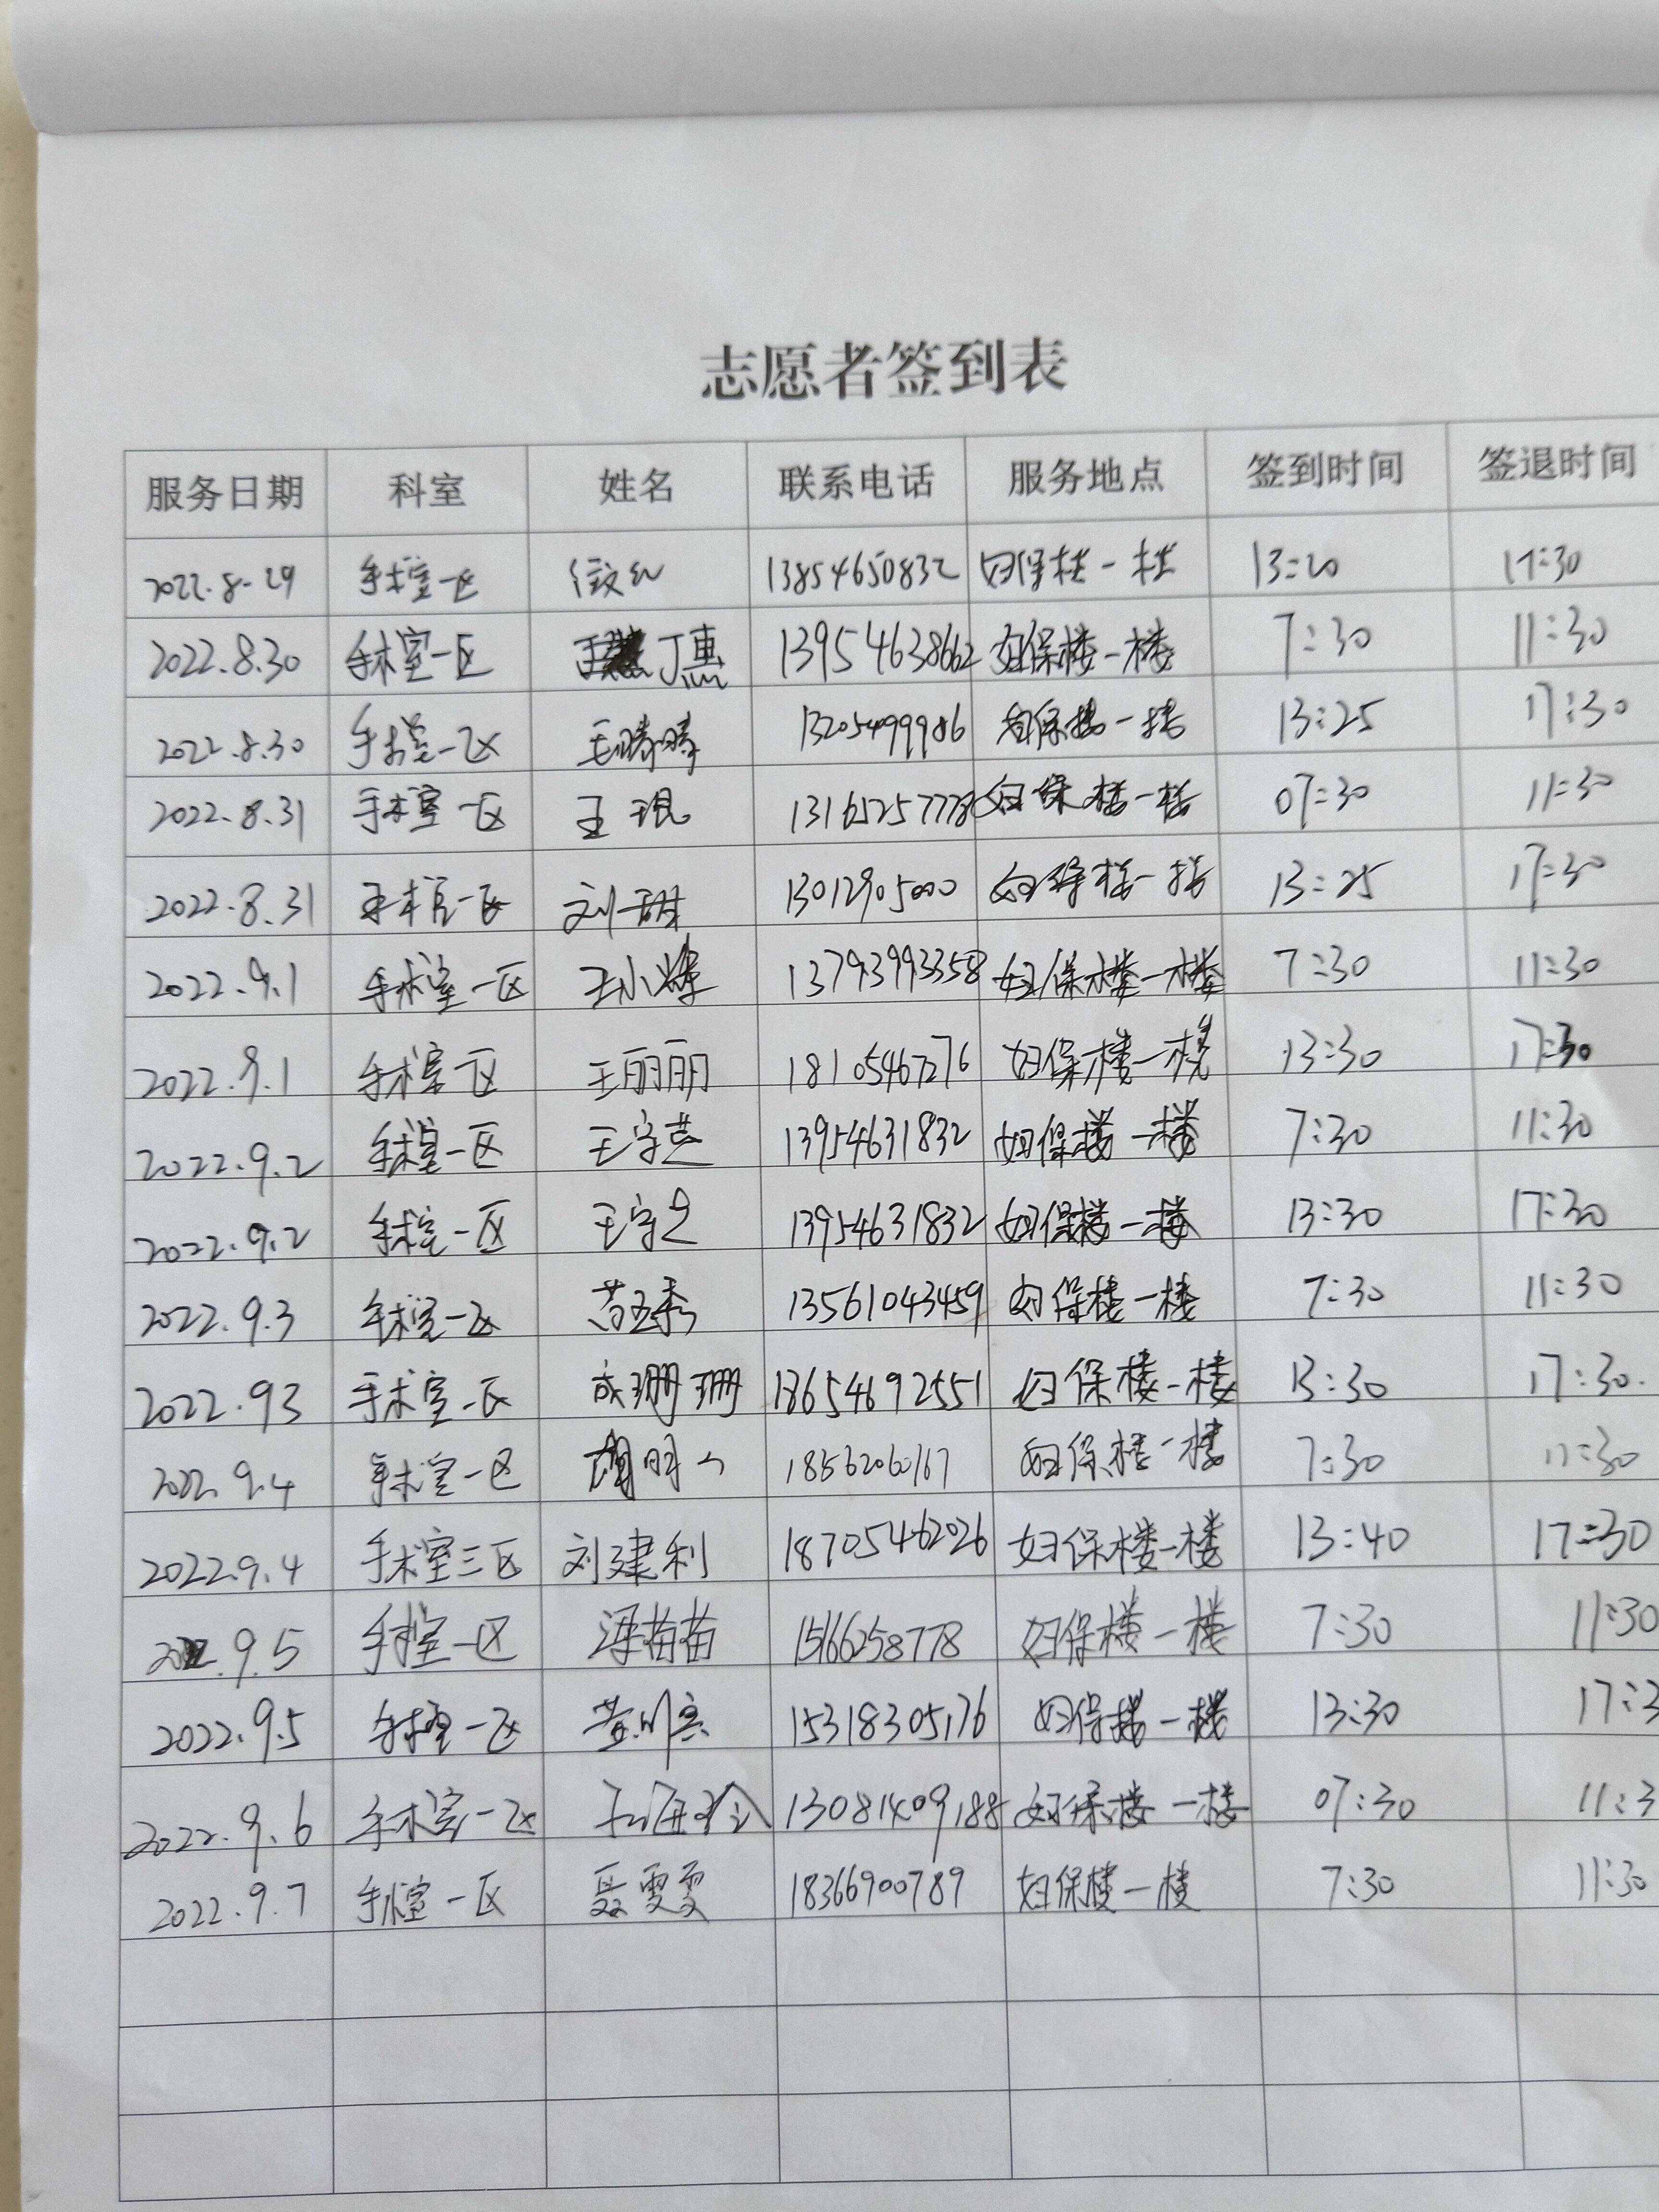 志愿者签到表
服务日期 科室 姓名 联系电话 服务地点 签到时间 签退时间
2022.8.29 手术室一区 13854650832 妇保楼一楼 13:20 17:30
2022.8.30 手术室一区 丁惠 13954638662 妇保楼一楼 7:30 11:30
2022.8.30 手术室一区 王晴晴 13205499986 妇保楼一楼 13:25 17:30
2022.8.31 手术室一区 王琨 13165257778 妇保楼一楼 07:30 11:30
2022.8.31 手术室一区 刘甜 13012905000 妇保楼一楼 13:25 17:30
2022.9.1 手术室一区 王小婷 13793993358 妇保楼一楼 7:30 11:30
2022.9.1 手术室一区 王丽丽 18105467276 妇保楼一楼 13:30 17:30
2022.9.2 手术室一区 13954631832 妇保楼一楼 7:30 11:30
2022.9.2 手术室一区 13954631832 妇保楼一楼 13:30 17:30
2022.9.3 手术室一区 13561043459 妇保楼一楼 7:30 11:30
2022.93 手术室一区 成珊珊 18654692551 妇保楼一楼 13:30 17:30.
2022.9.4 手术室一区 18562060167 妇保楼一楼 7:30 11:30
2022.9.4 手术室三区 刘建利 18705462026 妇保楼一楼 13:40 17:30
2022.9.5 手术室一区 梁苗苗 15166258778 妇保楼一楼 7:30 11:30
2022.9.5 手术室一区 15318305176 妇保楼一楼 13:30 17:3
2022.9.6 手术室一区 13081409188 妇保楼一楼 07:30 11:3
2022.9.7 手术室一区 聂雯雯 18366900789 妇保楼一楼 7:30 11:30